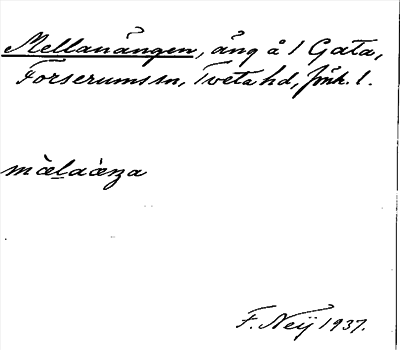 Mellanängen, äng å 1 Gata,
Forserums sn, Tveta hd, Jönk. l.
mæ̀l̠aæ̀ŋa
F. Neij 1937.